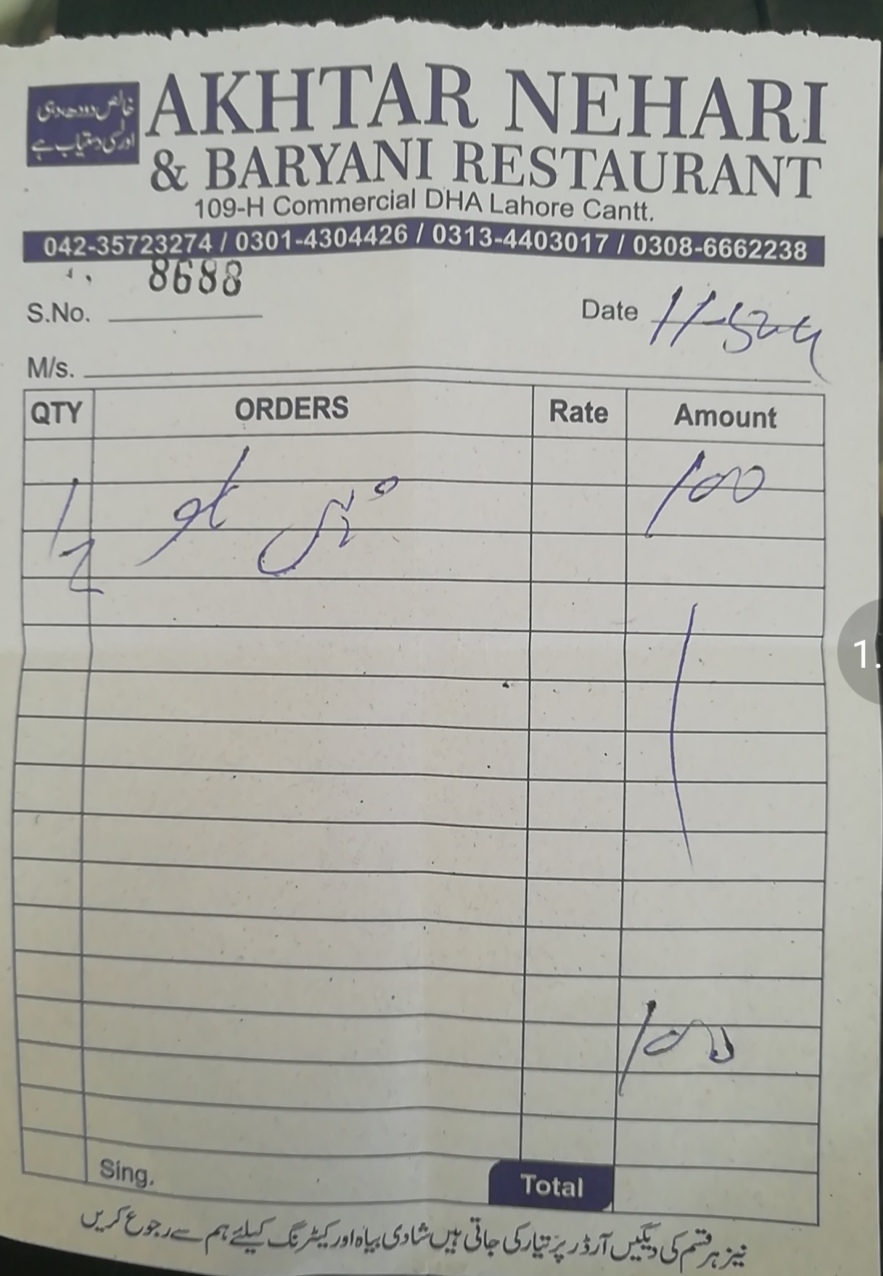 خالص دودھ دہی
اور لسی دستیاب ہے
AKHTAR NEHARI
& BARYANI RESTAURANT
109-H Commercial DHA Lahore Cantt.
042-35723274 / 0301-4304426 / 0313-4403017 / 0308-6662238
S.No. 8688
Date
M/s.
QTY ORDERS Rate Amount
1/2 100
100
Sing. Total
نیز ہر قسم کی دیگیں آرڈر پر تیار کی جاتی ہیں شادی بیاہ اور کیٹرنگ کیلئے ہم سے رجوع کریں
1.